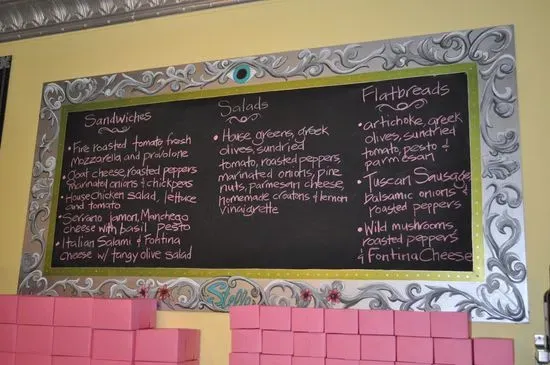 Sandwiches
• Fire roasted tomato fresh
mozzarella and provolone
• Goat cheese, roasted peppers
marinated onions & chickpeas
• House Chicken salad, lettuce
and tomato
• Serrano jamon, Manchego
cheese with basil pesto
• Italian Salami & Fontina
cheese w/ tangy olive salad
Salads
• House greens, greek
olives, sundried
tomato, roasted peppers,
marinated onions, pine
nuts, parmesan cheese,
homemade croutons & lemon
vinaigrette
Flatbreads
• artichoke, greek
olives, sundried
tomato, pesto &
parmesan
• Tuscan Sausage,
balsamic onions &
roasted peppers
• Wild mushrooms,
roasted peppers
& Fontina Cheese
Stella